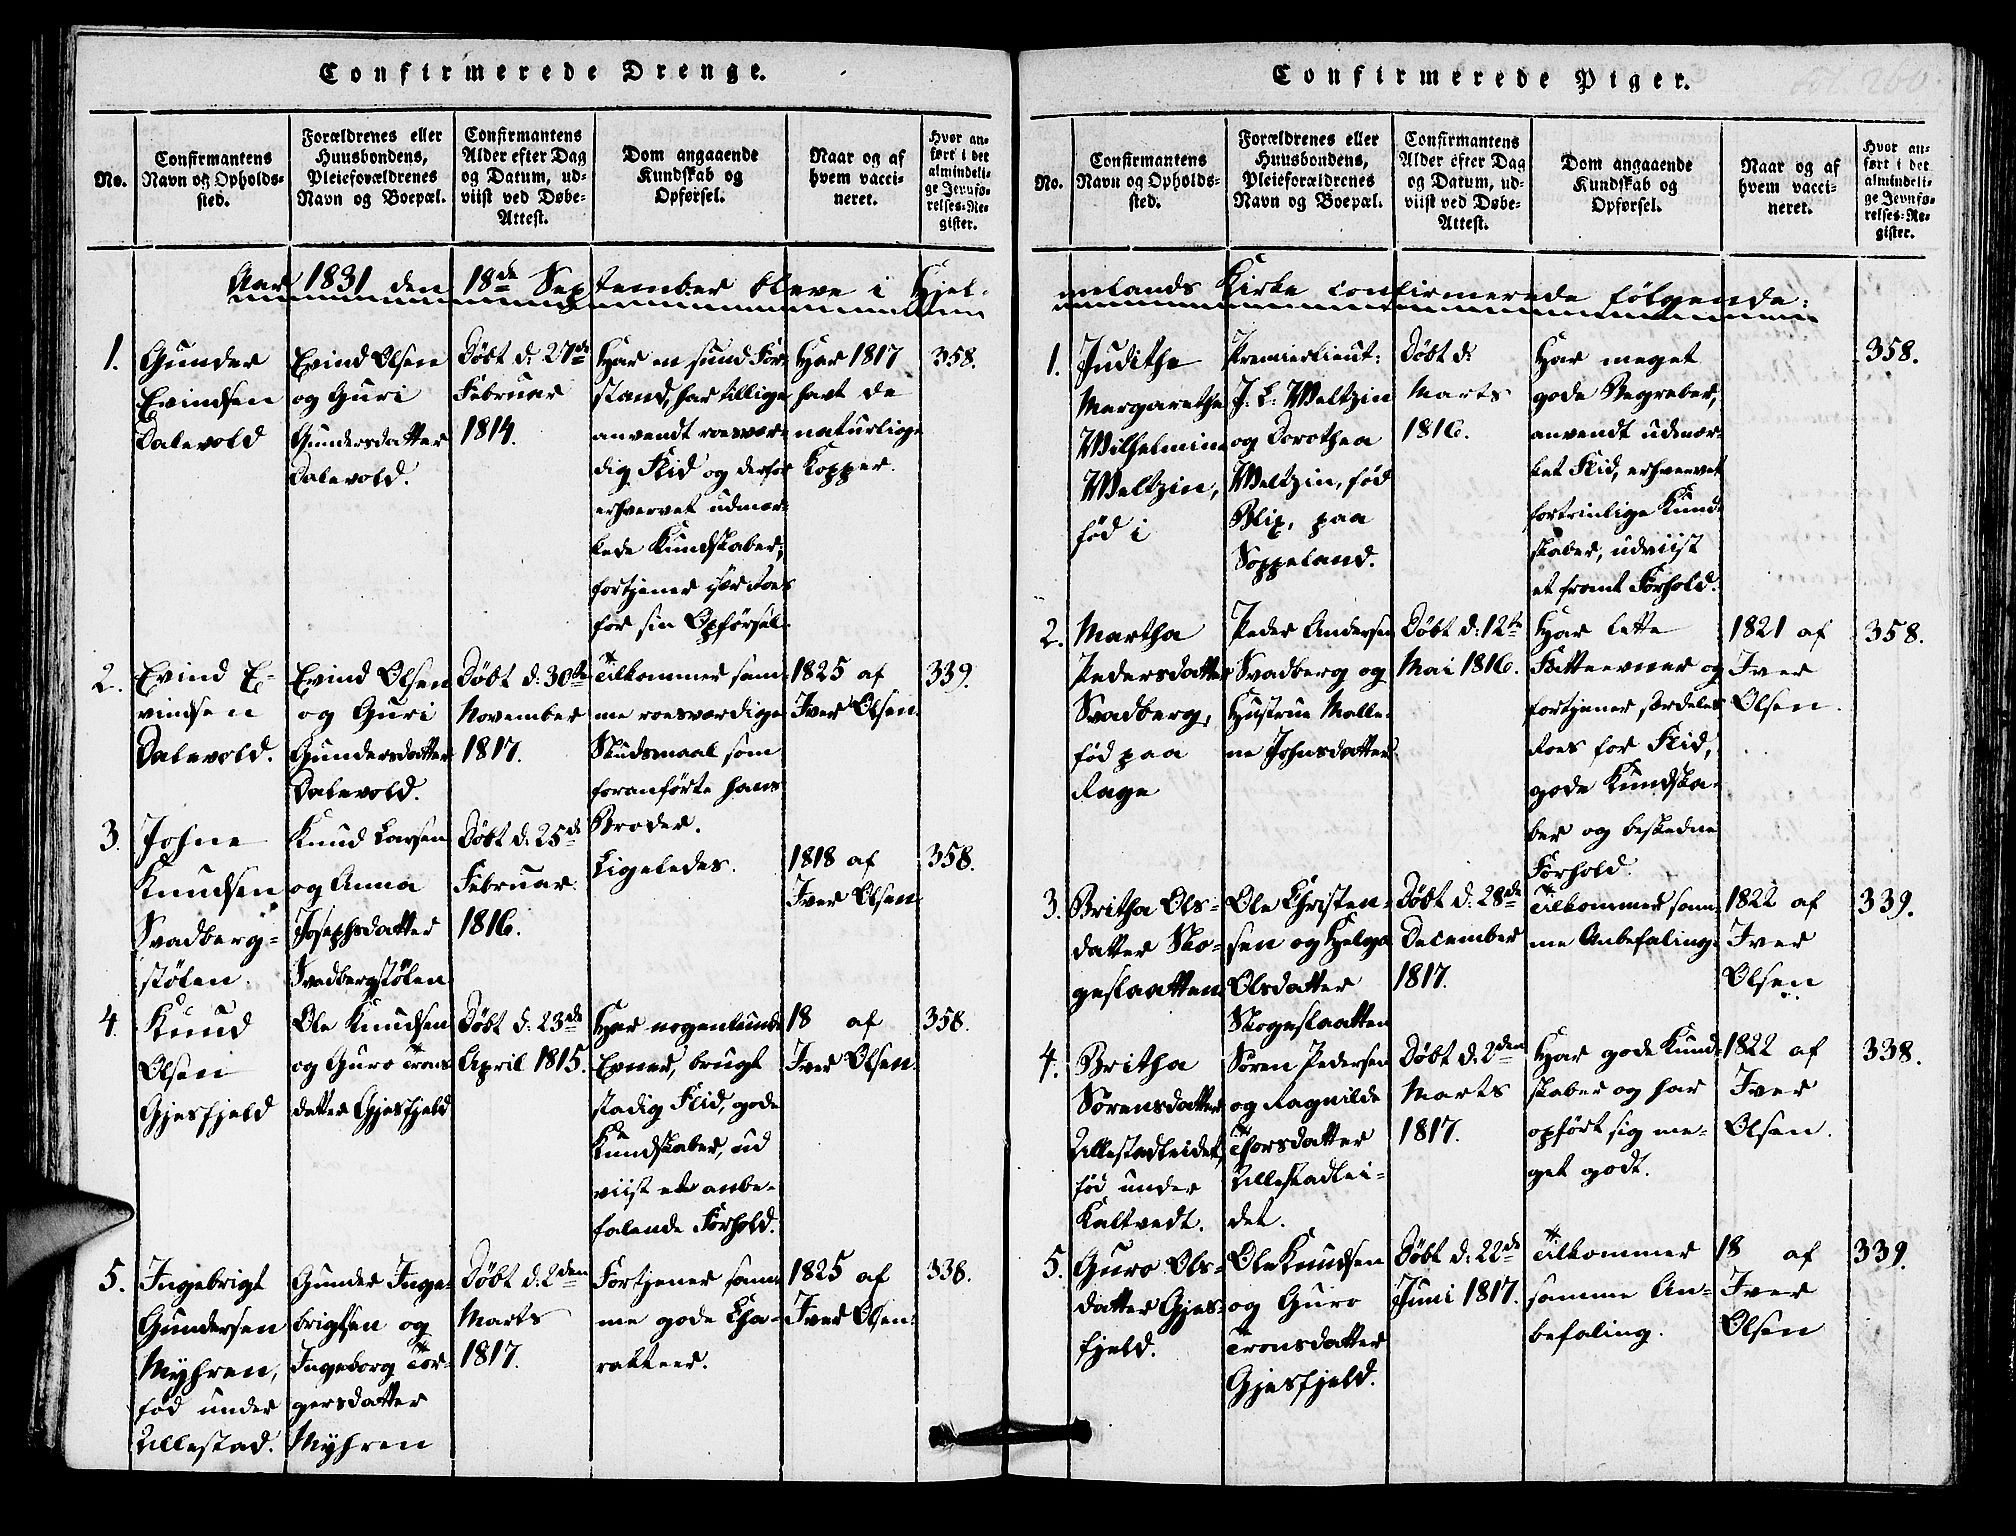 Confirmerede Drenge.
No.
Confirmantens
Navn og Opholds-
sted.
Forældrenes eller
Huusbondens,
Pleieforældrenes
Navn og Boepæl.
Confirmantens
Alder efter Dag
og Datum, ud-
viist ved Døbe-
Attest.
Dom angaaende
Kundskab og
Opførsel.
Naar og af
hvem vacci-
neret.
Hvor an-
ført i det
almindeli-
ge Jevnfø-
relses-Re-
gister.
Aar 1831 den 18de September bleve i Hjel-
1.
Gunder
Evindsen
Dalevold
Evind Olsen
og Guri
Gundersdatter
Dalevold.
Døbt d: 27de
Februar
1814.
Har en sund For-
stand, har tillige
anvendt roesvær-
dig Flid og derfor
erhvervet udmær-
kede Kundskaber;
fortjener især Roes
for sin Opførsel.
Har 1817
havt de
naturlige
Kopper.
358.
2.
Evind E-
vindsen
Dalevold.
Evind Olsen
og Guri
Gundersdatter
Dalevold.
Døbt d: 30te
November
1817.
Tilkommer sam-
me roesværdige
Skudsmaal som
foranførte hans
Broder.
1825 af
Iver Olsen.
339.
3.
Johne
Knudsen
Svadberg-
stølen.
Knud Larsen
og Anna
Josephsdatter
Svadbergstølen
Døbt d: 25de
Februar
1816.
Ligeledes.
1818 af
Iver Olsen.
358.
4.
Knud
Olsen
Gjesfjeld
Ole Knudsen
og Guro Trons-
datter Gjesfjeld
Døbt d: 23de
April 1815.
Har nogenlunde
Evner, brugt
stadig Flid, gode
Kundskaber, ud
viist et anbe-
falende Forhold.
18 af
Iver Olsen.
358.
5.
Ingebrigt
Gundersen
Myhren,
fød under
Ullestad.
Gunder Inge-
brigtsen og
Ingeborg Tor-
gersdatter
Myhren
Døbt d: 2den
Marts
1817.
Fortjener sam-
me gode Cha-
rakteer.
1825 af
Iver Olsen.
338.
Confirmerede Piger.
fol. 200
No.
Confirmantens
Navn og Opholds-
sted.
Forældrenes eller
Huusbondens,
Pleieforældrenes
Navn og Boepæl.
Confirmantens
Alder efter Dag
og Datum, ud-
viist ved Døbe-
Attest.
Dom angaaende
Kundskab og
Opførsel.
Naar og af
hvem vacci-
neret.
Hvor an-
ført i det
almindeli-
ge Jevnfø-
relses-Re-
gister.
melands Kirke confirmerede følgende:
1.
Judithe
Margarethe
Wilhelmine
Weltzin,
fød i
Premierlieut:
J. L. Weltzin
og Dorothea
Weltzin, fød
Blix, paa
Soppeland.
Døbt d:
Marts
1816.
Har meget
gode Begreber,
anvendt udmær-
ket Flid, erhvervet
fortrinlige Kund-
skaber, udviist
et fromt Forhold.
358.
2.
Martha
Pedersdatter
Svadberg,
fød paa
Rage
Peder Andersen
Svadberg og
Hustrue Malle-
ne Johnsdatter
Døbt d: 12te
Mai 1816.
Har lette
Fatteevner og
fortjener særdeles
Roes for Flid,
gode Kundska-
ber og beskedne
Forhold.
1821 af
Iver
Olsen.
358.
3.
Britha Ols-
datter Sko-
geslaatten
Ole Christen-
sen og Helga
Olsdatter
Skogeslaatten
Døbt d: 28de
December
1817.
Tilkommer sam-
me Anbefaling.
1822 af
Iver
Olsen
339.
4.
Britha
Sørensdatter
Ullestadleidet,
fød under
Kaltvedt.
Søren Pedersen
og Ragnilde
Thorsdatter
Ullestadlei-
det.
Døbt d: 2den
Marts
1817.
Har gode Kund-
skaber og har
opført sig me-
get godt.
1822 af
Iver
Olsen.
338.
5.
Guro Ols-
datter Gjes-
fjeld.
Ole Knudsen
og Guro
Tronsdatter
Gjesfjeld.
Døbt d: 22de
Juni 1817.
Tilkommer
samme An-
befaling.
18 af
Iver
Olsen
339.